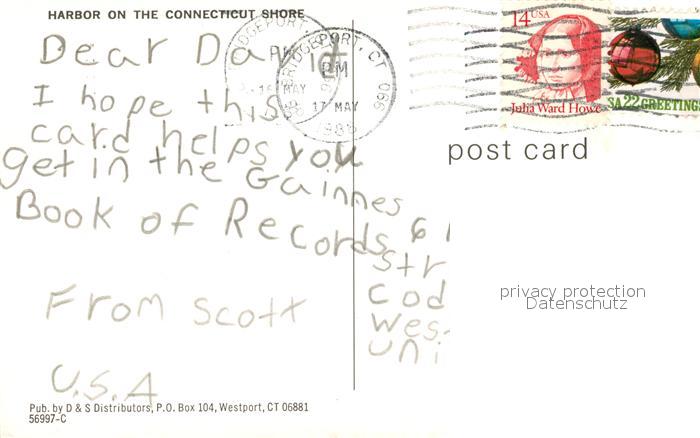 HARBOR ON THE CONNECTICUT SHORE
14 USA
Julia Ward Howe
USA 22 GREETINGS
BRIDGEPORT, CT 066
PM
17 MAY
1986
post card
Dear David
I hope this
card helps you
get in the Gainnes
Book of Records
From Scott
U.S.A
6
Str
Cod
Wes
Uni
privacy protection
Datenschutz
Pub. by D & S Distributors, P.O. Box 104, Westport, CT 06881
56997-C